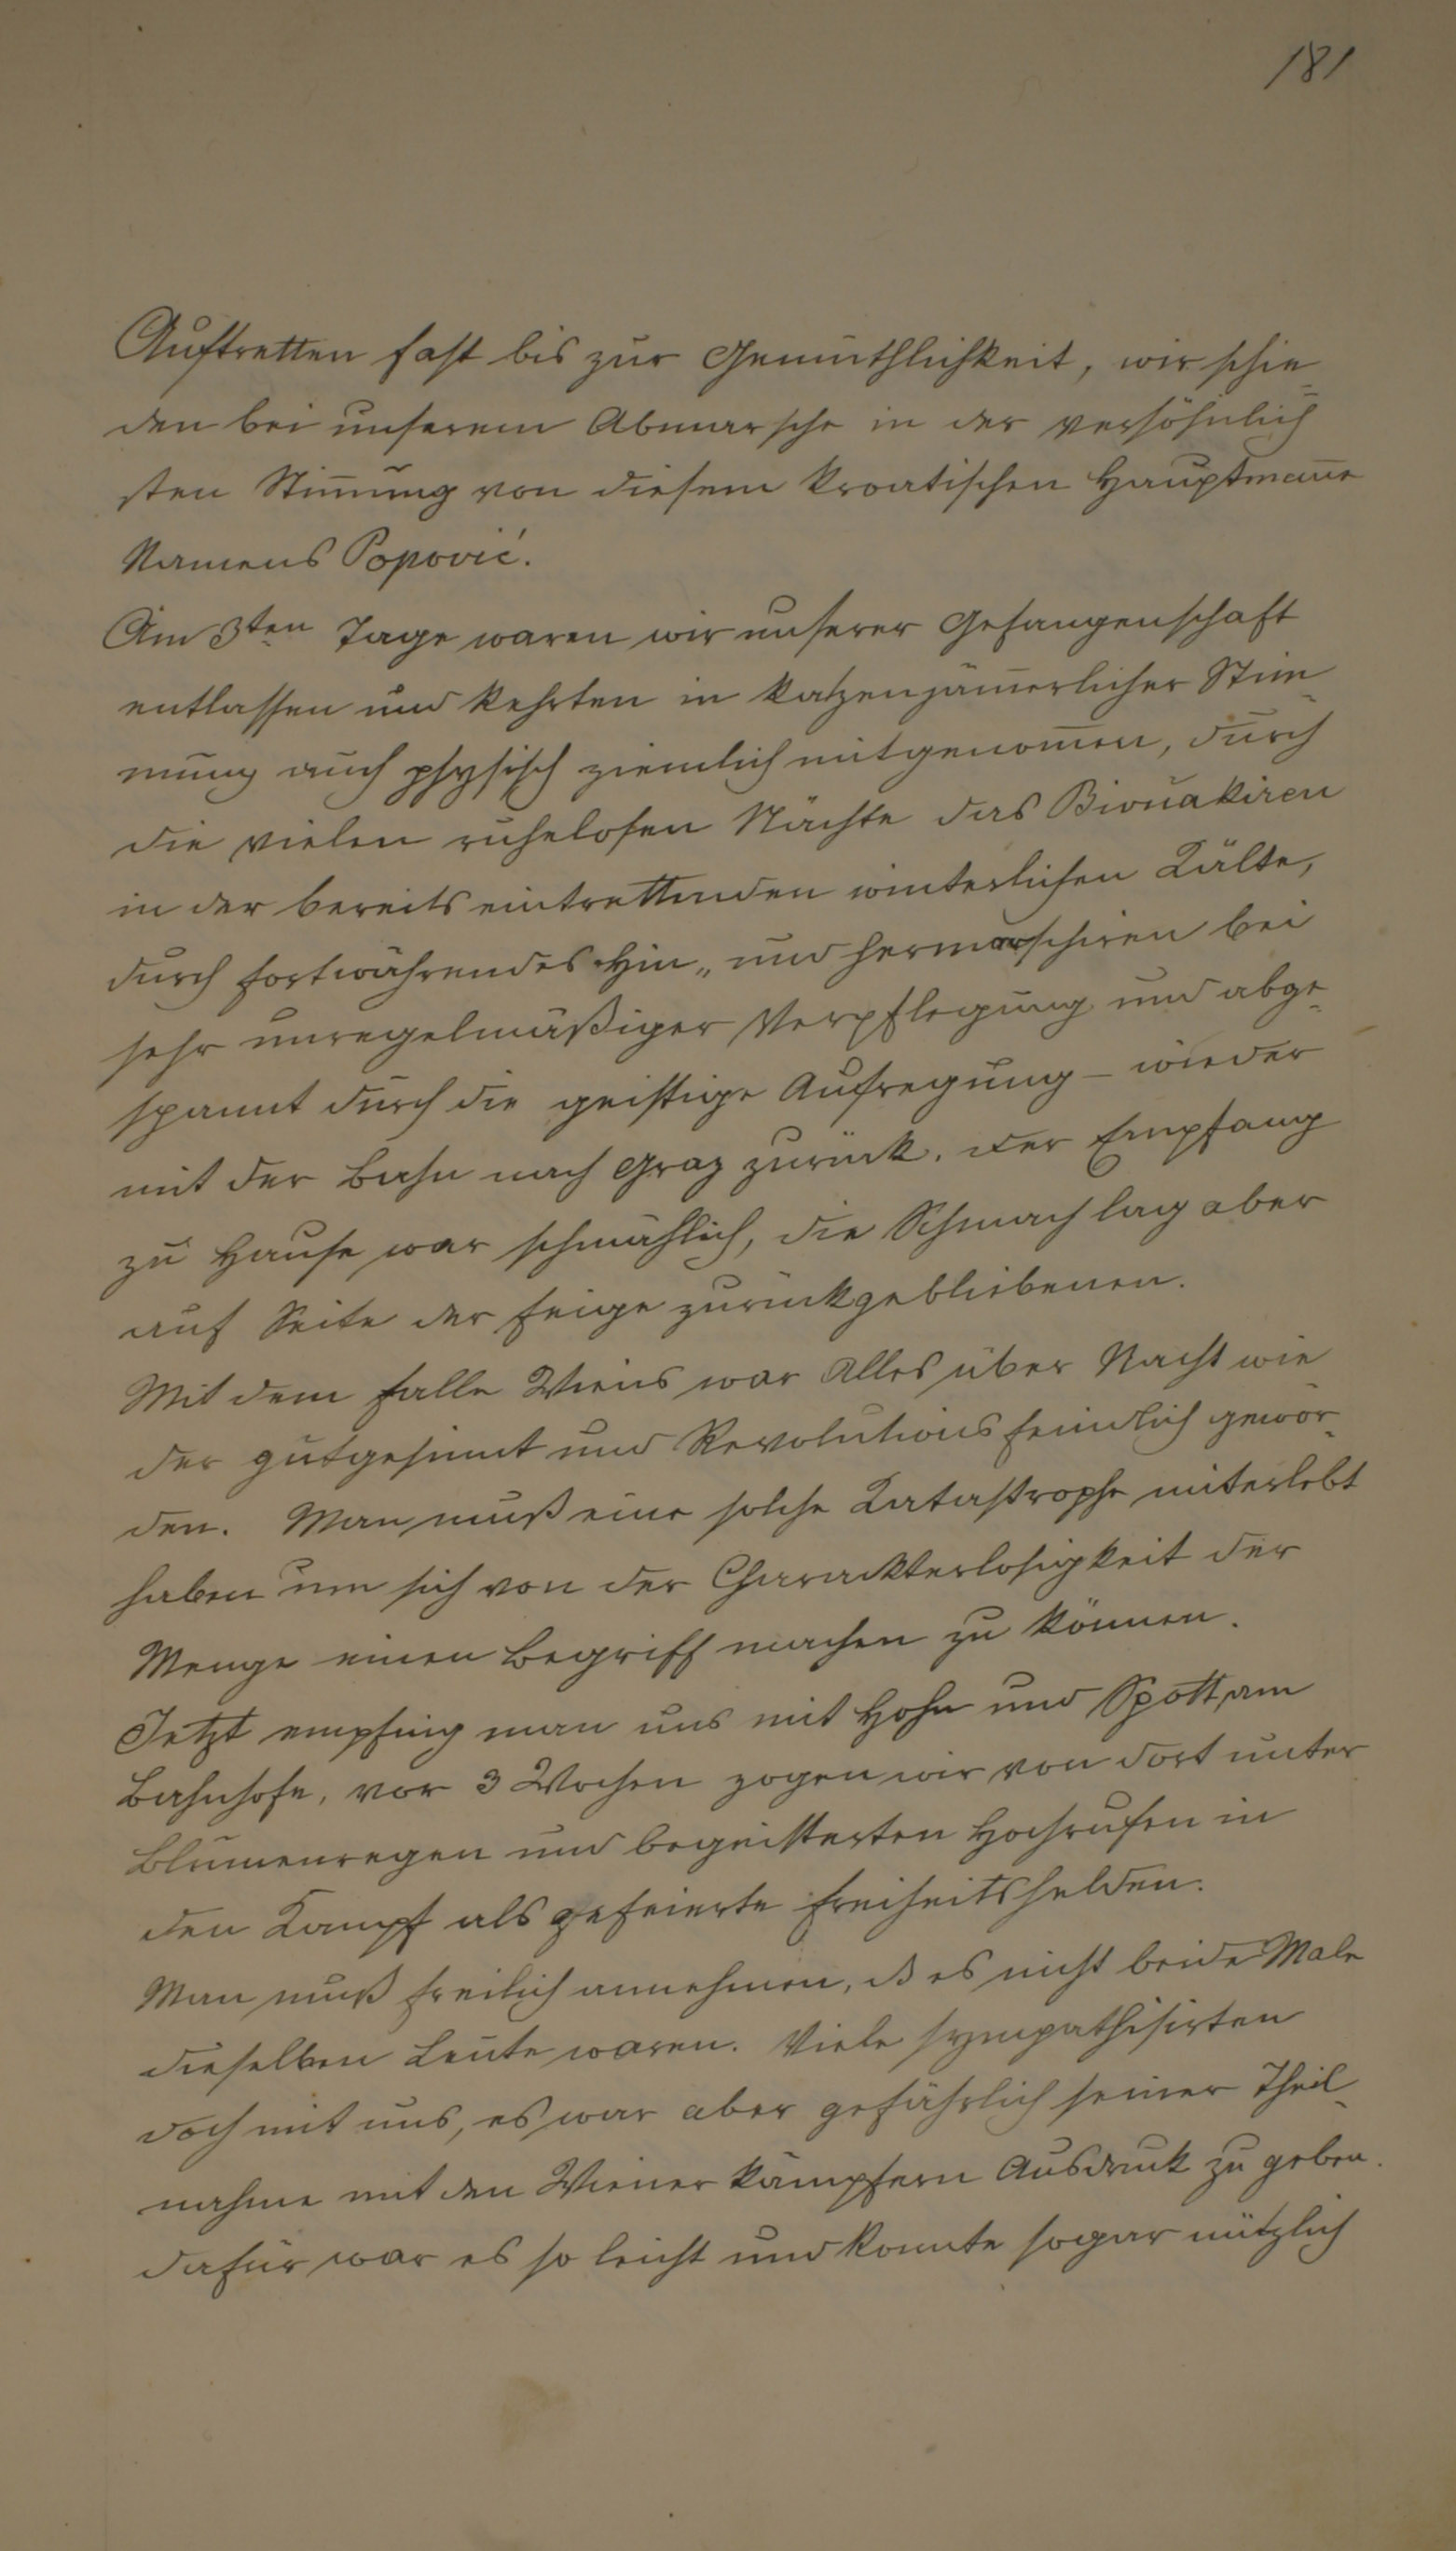 181
Auftretten fast bis zur Gemüthlichkeit, wir schie=
den bei unserem Abmarsche in der versöhnlich
sten Stim̅ung von diesem kroatischen Hauptman̅e
Namens Popović.
Am 3ten Tage waren wir unserer Gefangenschaft
entlassen und kehrten in katzenjäm̅erlicher Stim=
mung auch physisch ziemlich mitgenom̅en, durch
die vielen ruhelosen Nächte das Bivuakiren
in der bereits eintrettenden winterlichen Kälte,
durch fortwährendes Hin„ und hermarschiren bei
sehr unregelmäßiger Verpflegung und abge=
spannt durch die geistige Aufregung – wieder
mit der Bahn nach Graz zurück. Der Empfang
zu Hause war schmählich, die Schmach lag aber
auf Seite der feige zurückgebliebenen.
Mit dem Falle Wiens war Alles über Nacht wie
der gutgesinnt und Revolutionsfeindlich gewor=
den. Man muß eine solche Katastrophe miterlebt
haben um sich von der Charackterlosigkeit der
Menge einen Begriff machen zu können.
Jetzt empfing man uns mit Hohn und Spott am
Bahnhofe, vor 3 Wochen zogen wir von dort unter
Blumenregen und begeisterten Hochrufen in
den Kampf als gefeierte Freiheitshelden.
Man muß freilich annehmen, dß es nicht beide Male
dieselben Leute waren. Viele sympathisirten
doch mit uns, es war aber gefährlich seiner Theil=
nahme mit den Wiener kämpfern Ausdruck zu geben.
dafür war es so leicht und konnte sogar nützlich